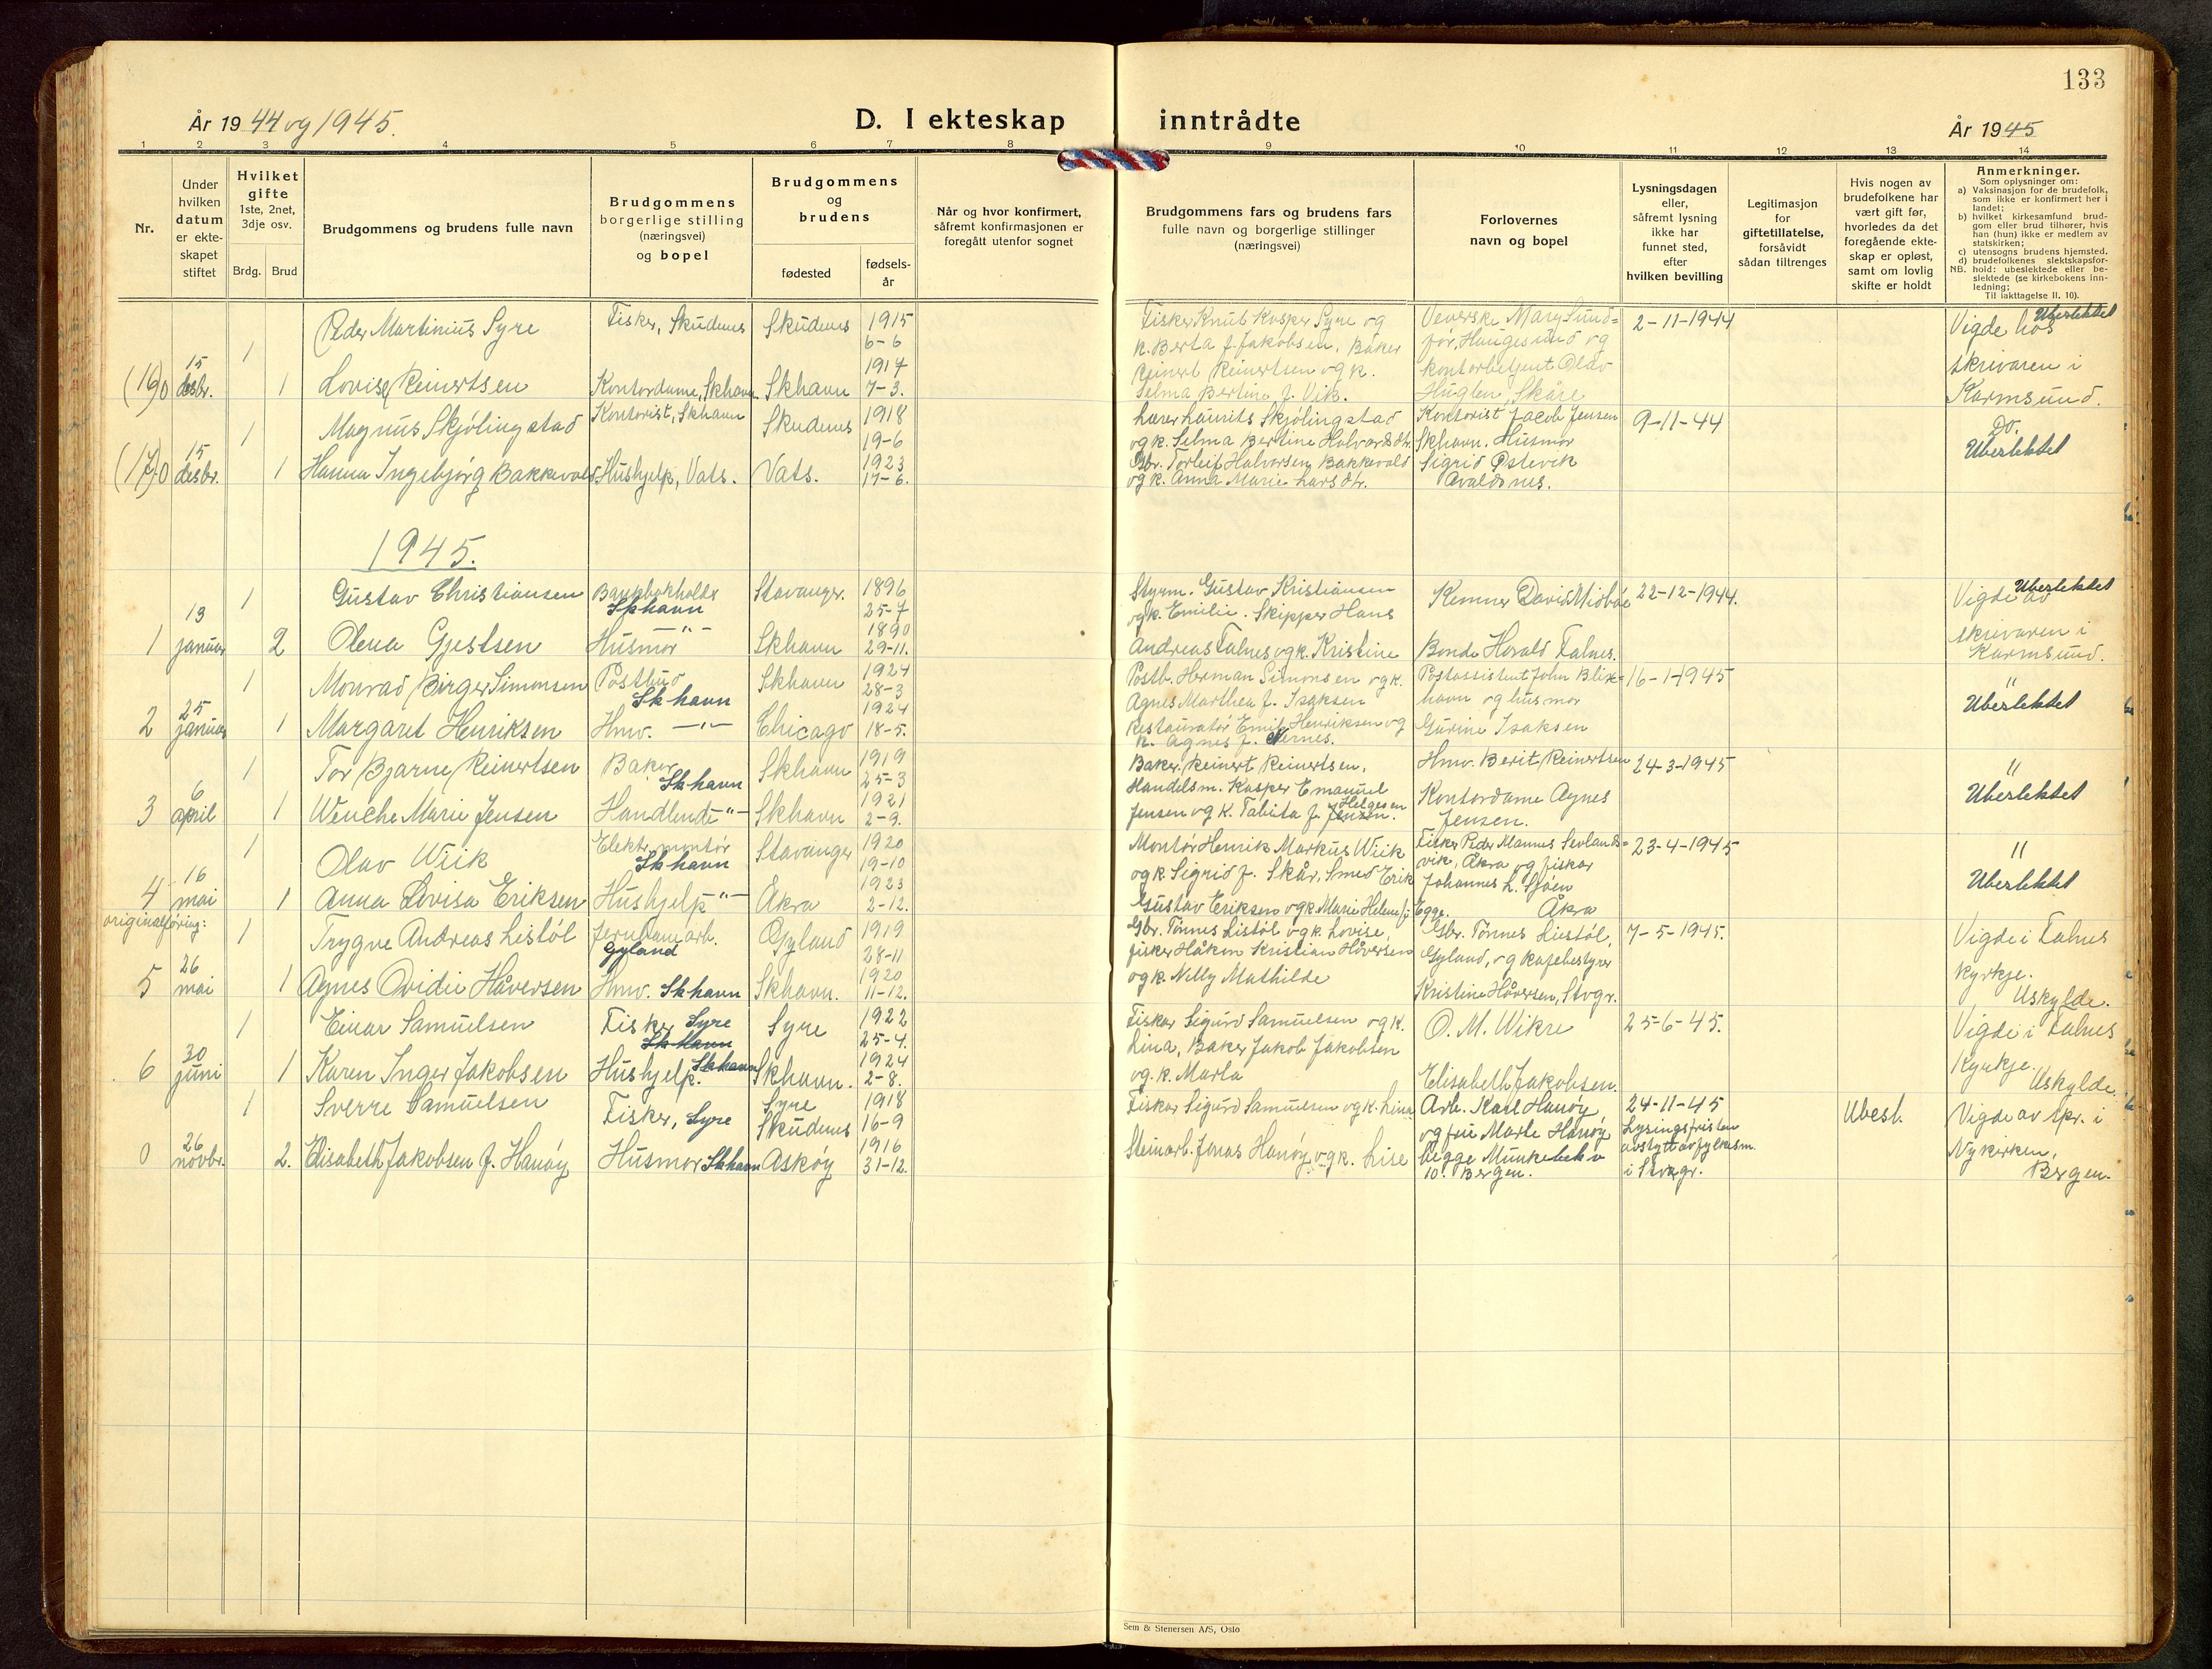 133
År 1944 og 1945.
D. I ekteskap inntrådte
År 1945
1 2 3 4 5 6 7 8 9 10 11 12 13 14
Nr.
Under hvilken datum er ekteskapet stiftet
Hvilket gifte
1ste, 2net, 3dje osv.
Brdg. Brud
Brudgommens og brudens fulle navn
Brudgommens borgerlige stilling (næringsvei) og bopel
Brudgommens og brudens
fødested
fødselsår
Når og hvor konfirmert, såfremt konfirmasjonen er foregått utenfor sognet
Brudgommens fars og brudens fars fulle navn og borgerlige stillinger (næringsvei)
Forlovernes navn og bopel
Lysningsdagen eller, såfremt lysning ikke har funnet sted, efter hvilken bevilling
Legitimasjon for giftetillatelse, forsåvidt sådan tiltrenges
Hvis nogen av brudefolkene har vært gift før, hvorledes da det foregående ekteskap er opløst, samt om lovlig skifte er holdt
Anmerkninger.
Som oplysninger om:
a) Vaksinasjon for de brudefolk, som ikke er konfirmert her i landet;
b) hvilket kirkesamfund brudgom eller brud tilhører, hvis han (hun) ikke er medlem av statskirken;
c) utensogns brudens hjemsted.
d) brudefolkenes slektskapsforhold: ubeslektede eller beslektede (se kirkebokens innledning;
NB.
Til iakttagelse II. 10).
Peder Martinius Syre Fisker, Skudenes Skudenes 1915 6-6
Fisker Knut Kasper Syre og k. Berta f. Jakobsen. Baker Reinert Reinertsen og k. Selma Bertine f. Vik.
Veverske Mary Sundfør, Haugesund og kontorbetjent Olav Huglen, Skåre
2-11-1944
Ubeslektet
Vigde hos skrivaren i Karmsund.
(16) 0 15 desbr. 1 1 Lovise Reinertsen Kontordame, Skhavn Skhavn 1917 7-3.
1 Magnus Skjølingstad Kontorist, Skhavn Skudenes 1918 19-6
Lærer Laurits Skjølingstad og k. Selma Bertine Halvordsdtr.
Gbr. Torleif Halvorsen Bakkevold og k. Anna Marie Larsdtr.
Kontorist Jacob Jensen Skhavn. Husmor Sigrid Østevik Avaldsnes.
9-11-44
Do.
Ubeslektet
(17) 0 15 desbr. 1 Hanna Ingebjørg Bakkevold Hushjelp, Vats. Vats. 1923 17-6.
1945.
1 Gustav Christiansen Bankbokholder Skhavn Stavanger. 1896 25-7
Styrm. Gustav Kristiansen og k. Emilie. Skipper Hans Andreas Falnes og k. Kristine
Kemner David Midbøe
Bonde Harald Falnes.
22-12-1944.
Ubeslektet
Vigde av skrivaren i Karmsund.
1 13 januar 2 Olena Gjestsen Husmor -"- Skhavn 1890 29-11.
1 Monrad Birger Simonsen Postbud Skhavn Skhavn 1924 28-3
Postb. Herman Simonsen og k. Agnes Marthea f. Isaksen
Restauratør Emil Henriksen og k. Agnes f. Nernes.
Postassistent John Blikhavn og husmor Gurine Isaksen
16-1-1945
"
Ubeslektet
2 25 januar 1 Margaret Henriksen Hmv. -"- Chicago 1924 18-5.
1 Tor Bjarne Reinertsen Baker Skhavn Skhavn 1919 25-3
Baker, Reinert Reinertsen.
Handelsm. Kasper Emanuel Jensen og k. Tabita f. Jensen. Helgesen
Hmv. Berit Reinertsen
Kontordame Agnes Jensen.
24-3-1945
"
Ubeslektet
3 6 april 1 Wenche Marie Jensen Handlende -"- Skhavn 1921 2-9.
1 Olav Wiik Elektr. montør Skhavn Stavanger 1920 19-10
Montør Henrik Markus Wiik og k. Sigrid f. Skår, Smed Erik Gustav Eriksen og k. Marie Helene f. Egge.
Fisker Peder Mannes Sevlandsvik, Åkra og fisker Johannes L. Sjøen Åkra
23-4-1945
"
Ubeslektet
4 16 mai 1 Anna Lovisa Eriksen Hushjelp -"- Åkra 1923 2-12.
originalføring:
1 Trygve Andreas Listøl Jernbanearb. Gyland Gyland 1919 28-11
Gbr. Tønnes Listøl og k. Lovise.
Fisker Håkon Kristian Håversen og k. Nelly Mathilde
Gbr. Tønnes Listøl, Gyland, og kafebestyrer Kristine Håversen, Stvgr.
7-5-1945.
Vigde i Falnes kyrkje. Uskylde.
5 26 mai 1 Agnes Ovidie Håversen Hmv. Skhavn Skhavn. 1920 11-12.
1 Einar Samuelsen Fisker Syre Skhavn Syre 1922 25-4.
Fisker Sigurd Samuelsen og k. Lina, Baker Jakob Jakobsen og. k. Marta
O. M. Wikre
Elisabeth Jakobsen.
25-6-45.
Vigde i Falnes kyrkje. Uskylde.
6 30 juni 1 Karen Inger Jakobsen Hushjelp. Skhavn Skhavn. 1924 2-8.
1 Sverre Samuelsen Fisker, Syre Syre Skudenes 1918 16-9
Fisker Sigurd Samuelsen og k. Lina
Steinarb. Jonas Hanøy og k. Lise
Arb. Karl Hanøy og fru Marte Hanøy begge 10. Bergen.
24-11-45
Lysingsfristen avstytt av fylkesm. i Stvgr.
Ubesl.
Vigde av spr. i Nykirken, Bergen.
0 26 novbr. 2. Elisabeth Jakobsen f. Hanøy Husmor Skhavn Askøy 1916 31-12.
Sem & Stenersen A/S, Oslo